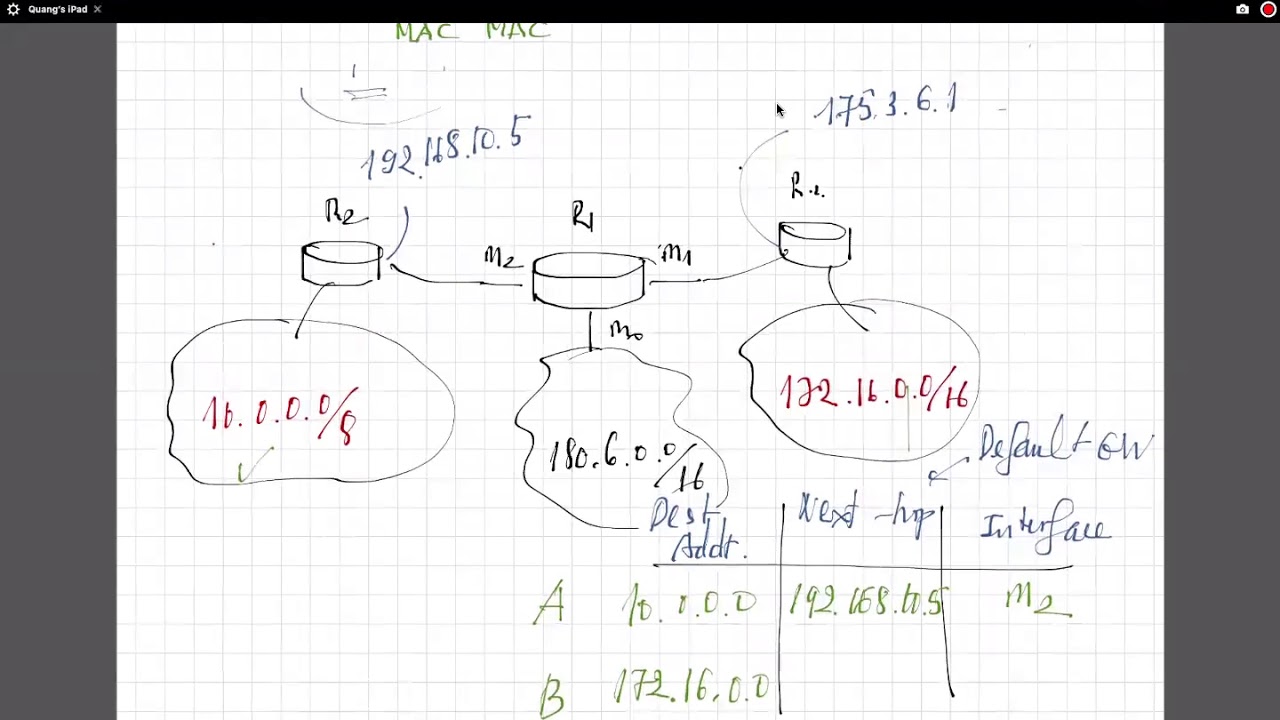 Quang's iPad
MAC MAC
175.3.6.1
192.168.10.5
R2
R1
m2
m1
m0
10.0.0.0/8
172.16.0.0/16
180.6.0.0/16
Default GW
Dest Addt.
Next-hop
Interface
A 10.0.0.0 192.168.10.5 m2
B 172.16.0.0